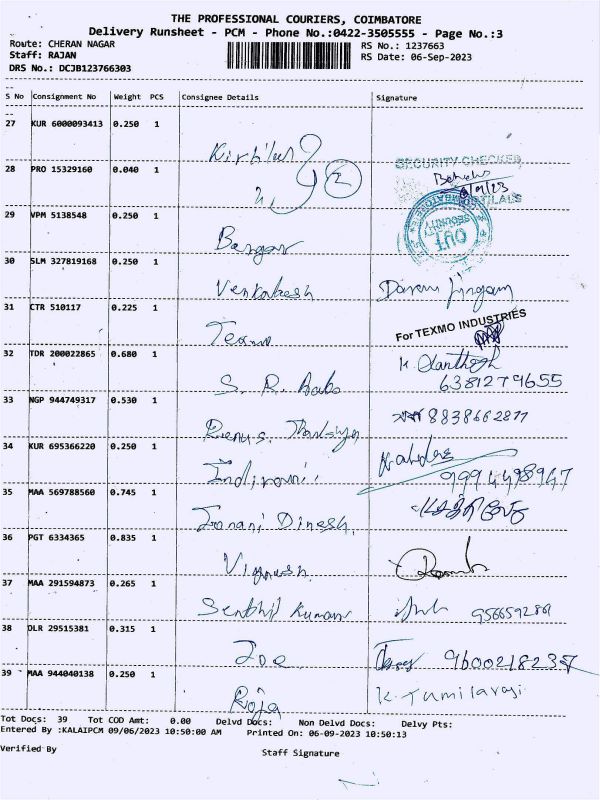 THE PROFESSIONAL COURIERS, COIMBATORE
Delivery Runsheet - PCM - Phone No.:0422-3505555 - Page No.:3
Route: CHERAN NAGAR RS No.: 1237663
Staff: RAJAN RS Date: 06-Sep-2023
DRS No.: DCJB123766303
S No Consignment No Weight PCS Consignee Details Signature
27 KUR 6000093413 0.250 1
28 PRO 15329160 0.040 1
2
SECURITY CHECKED
OUT
SECURITY
29 VPM 5138548 0.250 1
30 SLM 327819168 0.250 1
Venkatesh
31 CTR 510117 0.225 1
Texmo
For TEXMO INDUSTRIES
32 TDR 200022865 0.680 1
S. R. Babo
6381279655
33 NGP 944749317 0.530 1
8838662877
34 KUR 695366220 0.250 1
Indirani
9994498947
35 MAA 569788560 0.745 1
Janani Dinesh
36 PGT 6334365 0.835 1
Vignesh
37 MAA 291594873 0.265 1
Senthil Kumar
38 DLR 29515381 0.315 1
Joe
39 MAA 944040138 0.250 1
Roja
K. Tumilarasi
Tot Docs: 39 Tot COD Amt: 0.00 Delvd Docs: Non Delvd Docs: Delvy Pts:
Entered By :KALAIPCM 09/06/2023 10:50:00 AM Printed On: 06-09-2023 10:50:13
Verified By Staff Signature